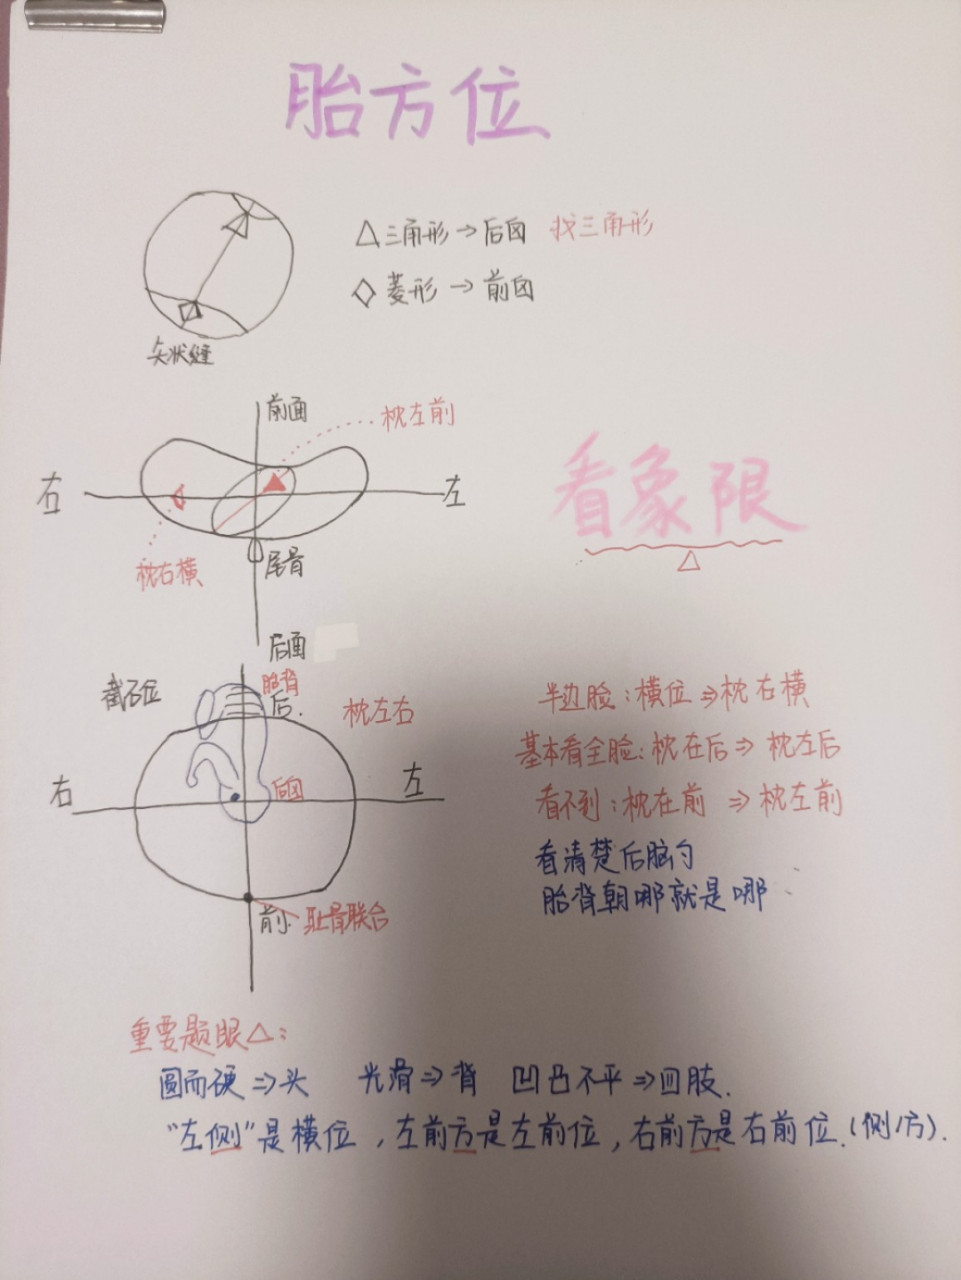 胎方位
△三角形→后囟 找三角形
◇菱形→前囟
矢状缝
前面
枕左前
右
左
枕右横
尾骨
后面
看象限
△
截石位
胎背
后.
枕左右
右
左
后囟
前
耻骨联合
半边脸:横位⇒枕右横
基本看全脸:枕在后⇒枕左后
看不到:枕在前⇒枕左前
看清楚后脑勺
胎背朝哪就是哪
重要题眼△:
圆而硬⇒头 光滑⇒背 凹凸不平⇒四肢.
“左侧”是横位,左前方是左前位,右前方是右前位.(侧/方).